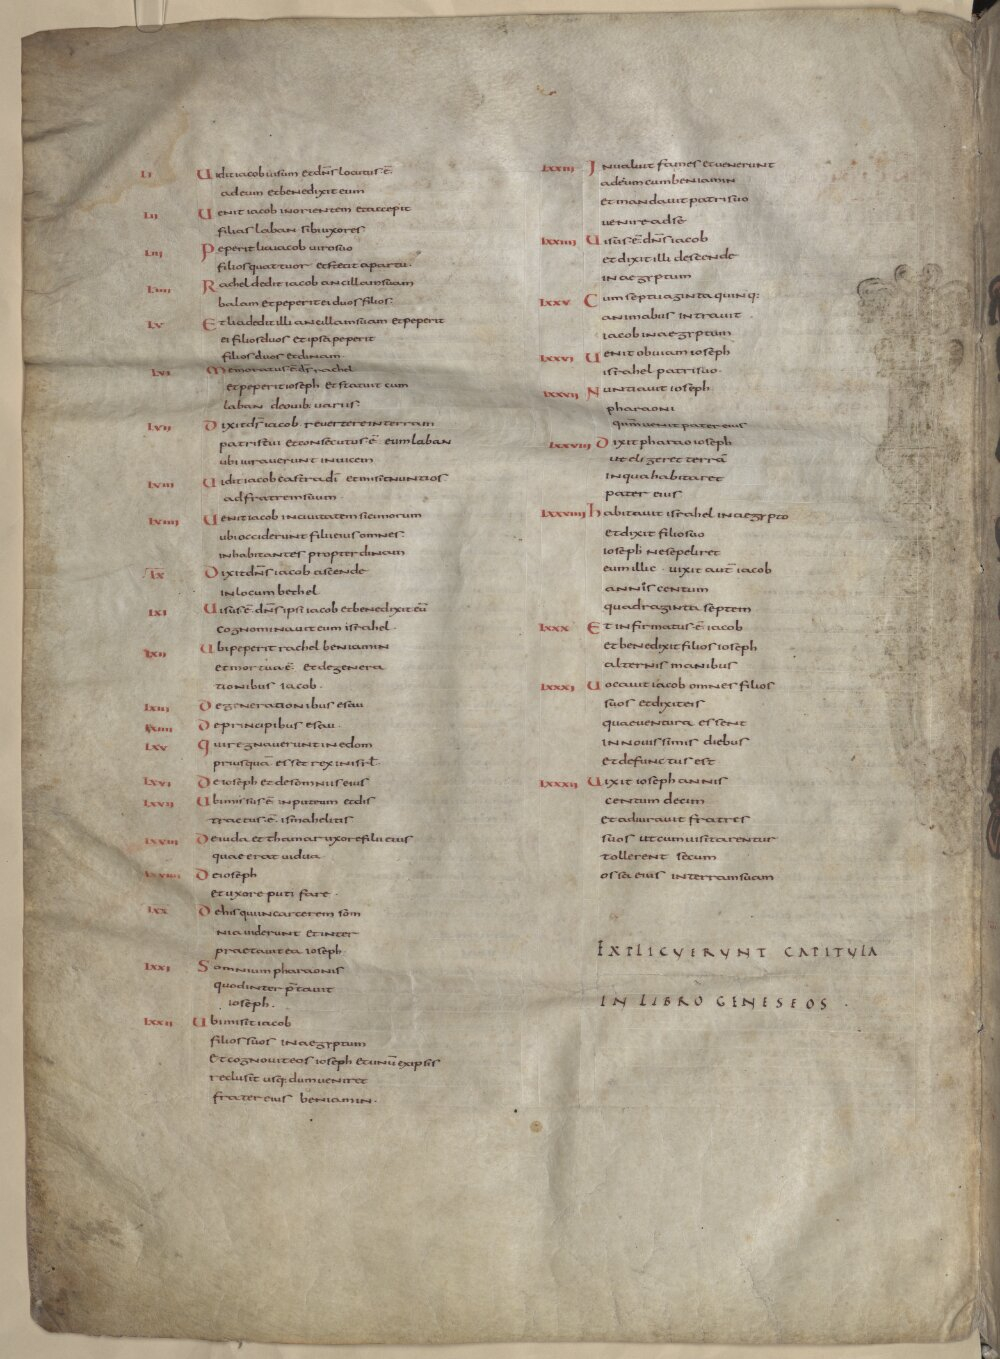 LI Uidit iacob uisum et dn̄s locutus ē
ad eum et benedixit eum
LII Uenit iacob in orientem et accepit
filias laban sibi uxores
LIII Peperit lia iacob uiro suo
filios quattuor et stetit a partu.
LIIII Rachel dedit iacob ancillam suam
balam et peperit ei duos filios:
LV Et lia dedit illi ancillam suam et peperit
ei filios duos et ipsa peperit
filios duos et dinam.
LVI Memoratus ē ds̄ rachel
et peperit ioseph et statuit cum
laban de ouib: uariis:
LVII Dixit ds̄ iacob reuertere in terram
patris tui et consecutus ē eum laban
ubi iurauerunt inuicem
LVIII Uidit iacob castra dī et misit nuntios
ad fratrem suum .
LVIIII Uenit iacob in ciuitatem sicimorum
ubi occiderunt filii eius omnes:
inhabitantes propter dinam
LX Dixit dn̄s iacob ascende
in locum bethel
LXI Uisus ē dn̄s ipsi iacob et benedixit eū
cognominauit eum israhel .
LXII Ubi peperit rachel beniamin
et mortua ē et de genera
tionibus iacob .
LXIII De generationibus esau
LXIIII De principibus esau .
LXV Qui regnauerunt in edom
priusquā esset rex in isrl̄.
LXVI De ioseph et de somniis eius
LXVII Ubi missus ē in puteum et dis
tractus ē ismahelitis
LXVIII De iuda et thamar uxore filii eius
quae erat uidua
LXVIIII De ioseph
et uxore putifare .
LXX De his qui in carcerem som
nia uiderunt et inter
praetauit ea ioseph .
LXXI Somnium pharaonis
quod inter p̄tauit
ioseph .
LXXII Ubi misit iacob
filios suos in aegyptum
et cognouit eos ioseph et unū ex ipsis
reclusit usq: dum ueniret
frater eius beniamin .
LXXIII Inualuit fames et uenerunt
ad eum cum beniamin
et mandauit patri suo
uenire ad se
LXXIIII Uisus ē dn̄s iacob
et dixit illi descende
in aegyptum
LXXV Cum septuaginta quinq:
animabus intrauit .
iacob in aegyptum
LXXVI Uenit obuiam ioseph
israhel patri suo .
LXXVII Nuntiauit ioseph
pharaoni
quia uenit pater eius
LXXVIII Dixit pharao ioseph
ut eligeret terrā
in qua habitaret
pater eius
LXXVIIII habitauit israhel in aegypto
et dixit filio suo
ioseph ne sepeliret
eum illic . uixit aut̄ iacob
annis centum
quadraginta septem
LXXX Et infirmatus ē iacob
et benedixit filios ioseph
alternis manibus
LXXXI Uocauit iacob omnes filios
suos et dixit eis
quae uentura essent
in nouissimis diebus
et defunctus est
LXXXII Uixit ioseph annis
centum decim
et adiurauit fratres
suos ut cum uisitarentur
tollerent secum
ossa eius in terram suam
EXPLICVERVNT CAPITVLA
IN LIBRO GENESEOS .